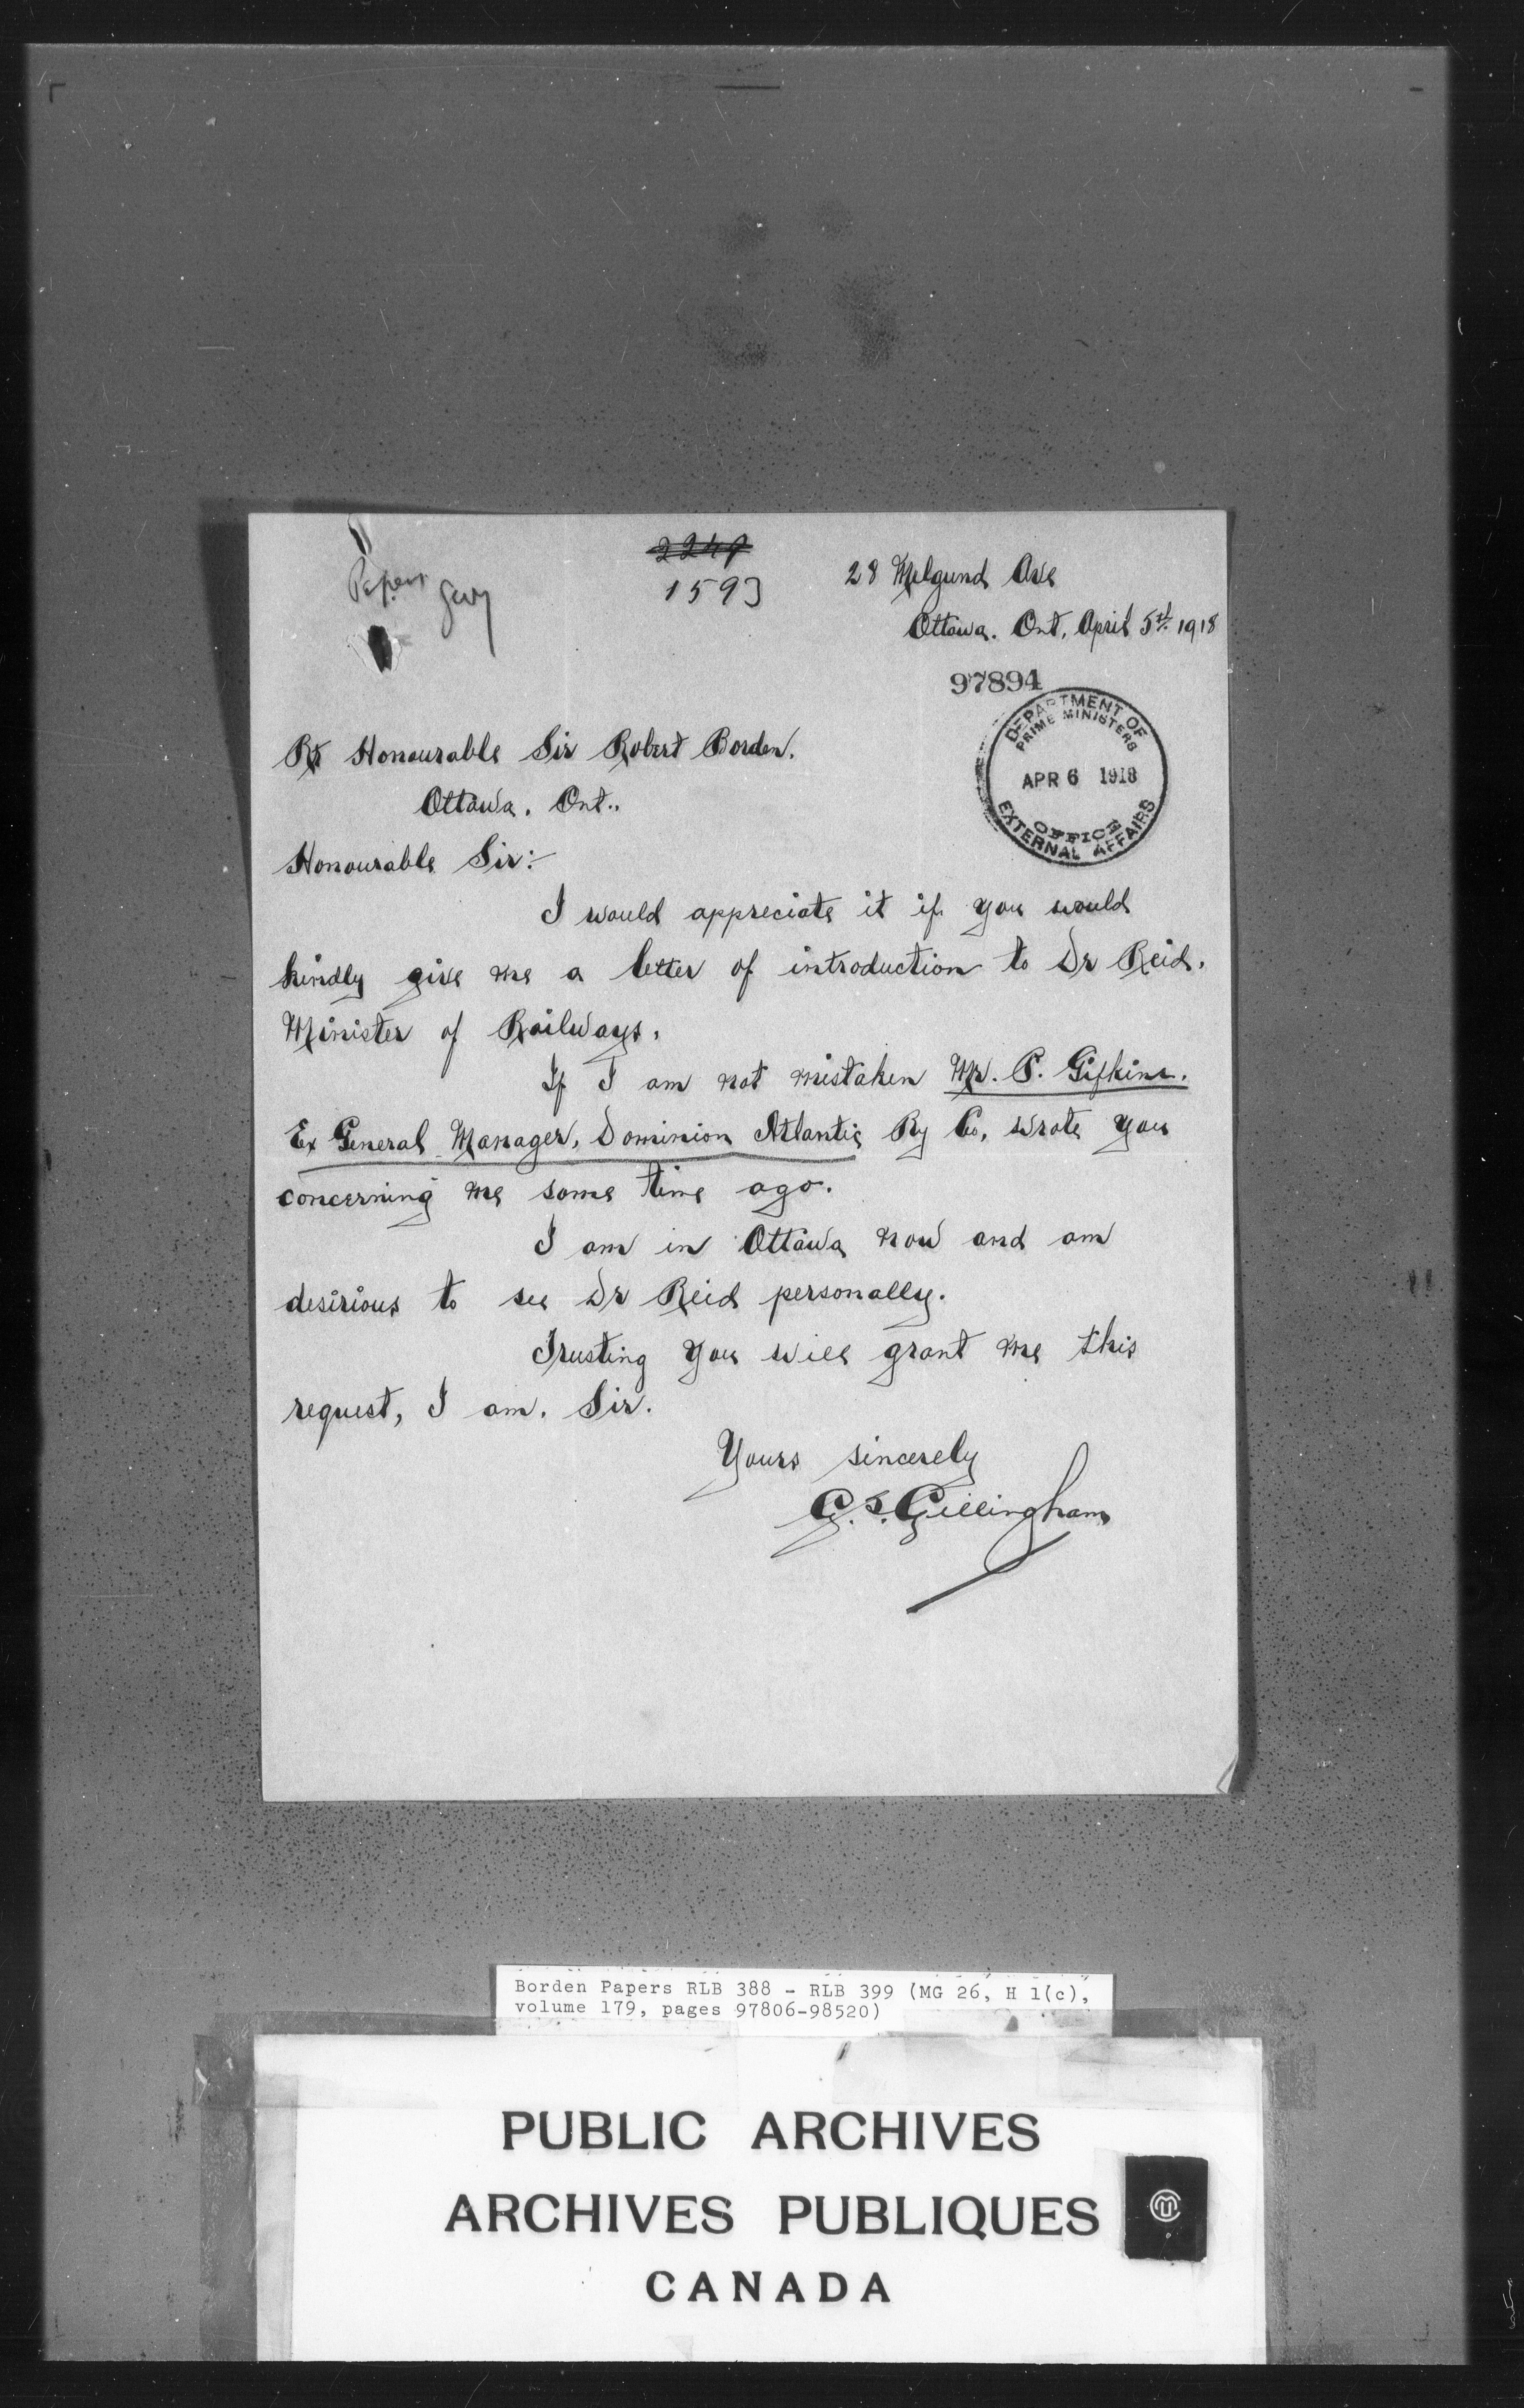 Papers
2249
1593
28 Melgund Ave
Ottawa. Ont, April 5th 1918
97894
DEPARTMENT OF
PRIME MINISTERS
APR 6 1918
OFFICE
EXTERNAL AFFAIRS
Rt Honourable Sir Robert Borden.
Ottawa. Ont..
Honourable Sir:-
I would appreciate it if you would
kindly give me a letter of introduction to Dr Reid.
Minister of Railways.
If I am not mistaken Mr. P. Gifkins.
Ex General Manager, Dominion Atlantic Ry Co, wrote you
concerning me some time ago.
I am in Ottawa now and am
desirious to see Dr Reid personally.
Trusting you will grant me this
request, I am. Sir.
Yours sincerely
G. S. Gillingham
Borden Papers RLB 388 - RLB 399 (MG 26, H 1(c),
volume 179, pages 97806-98520)
PUBLIC ARCHIVES
ARCHIVES PUBLIQUES
CANADA